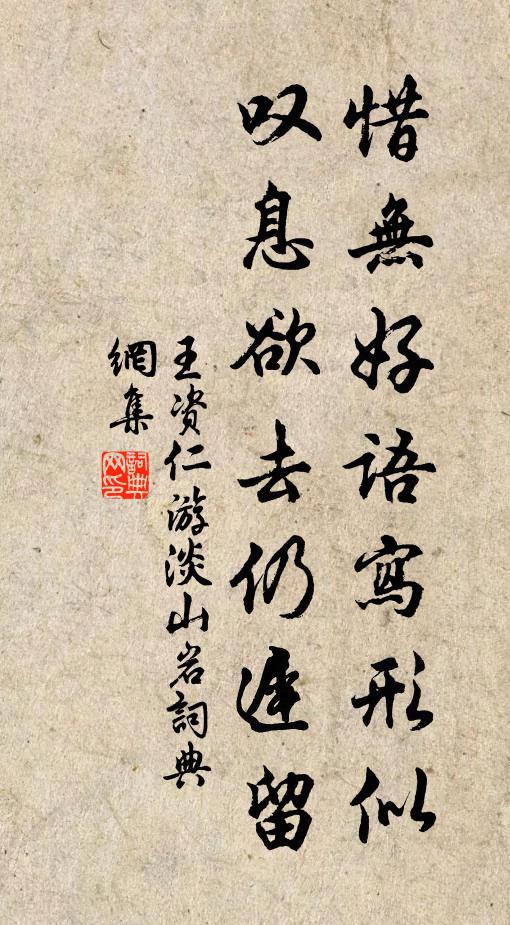 惜無好語寫形似
叹息欲去仍遲留
王资仁游淡山岩詞典
網集
詞典
网印